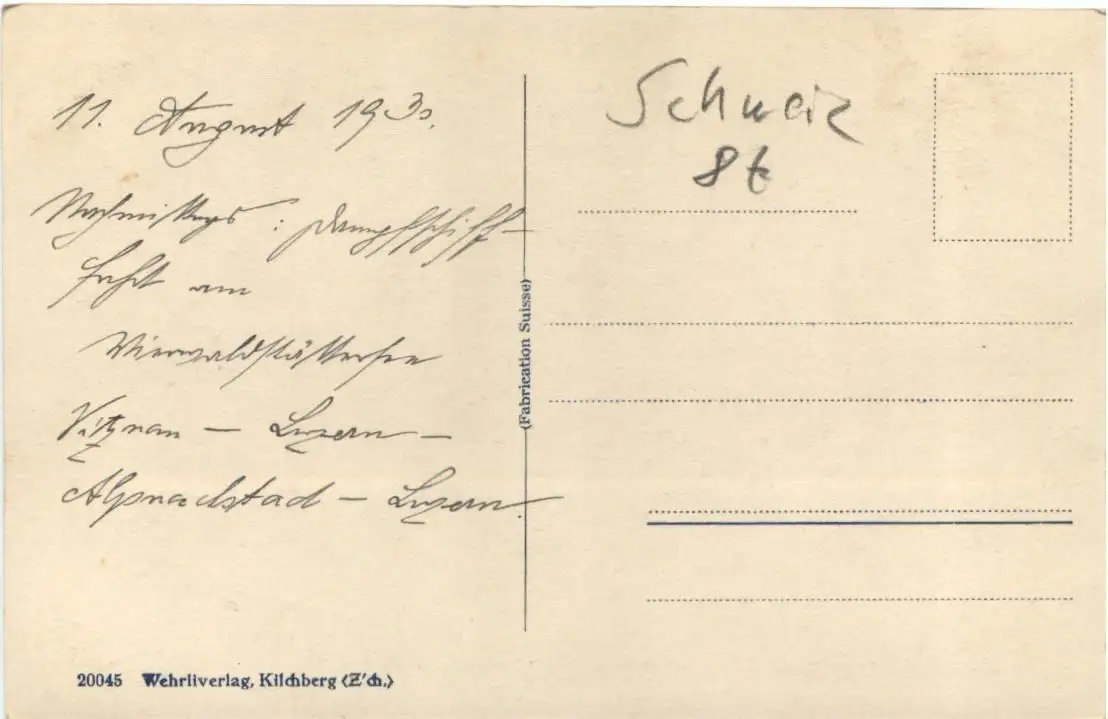 11. August 1930.
Nachmittags: Dampfschiff-
fahrt am
Vierwaldstättersee
Vitznau — Luzern —
Alpnachstad — Luzern.
Schweiz
8t
(Fabrication Suisse)
20045 Wehrliverlag, Kilchberg (Z'ch.)